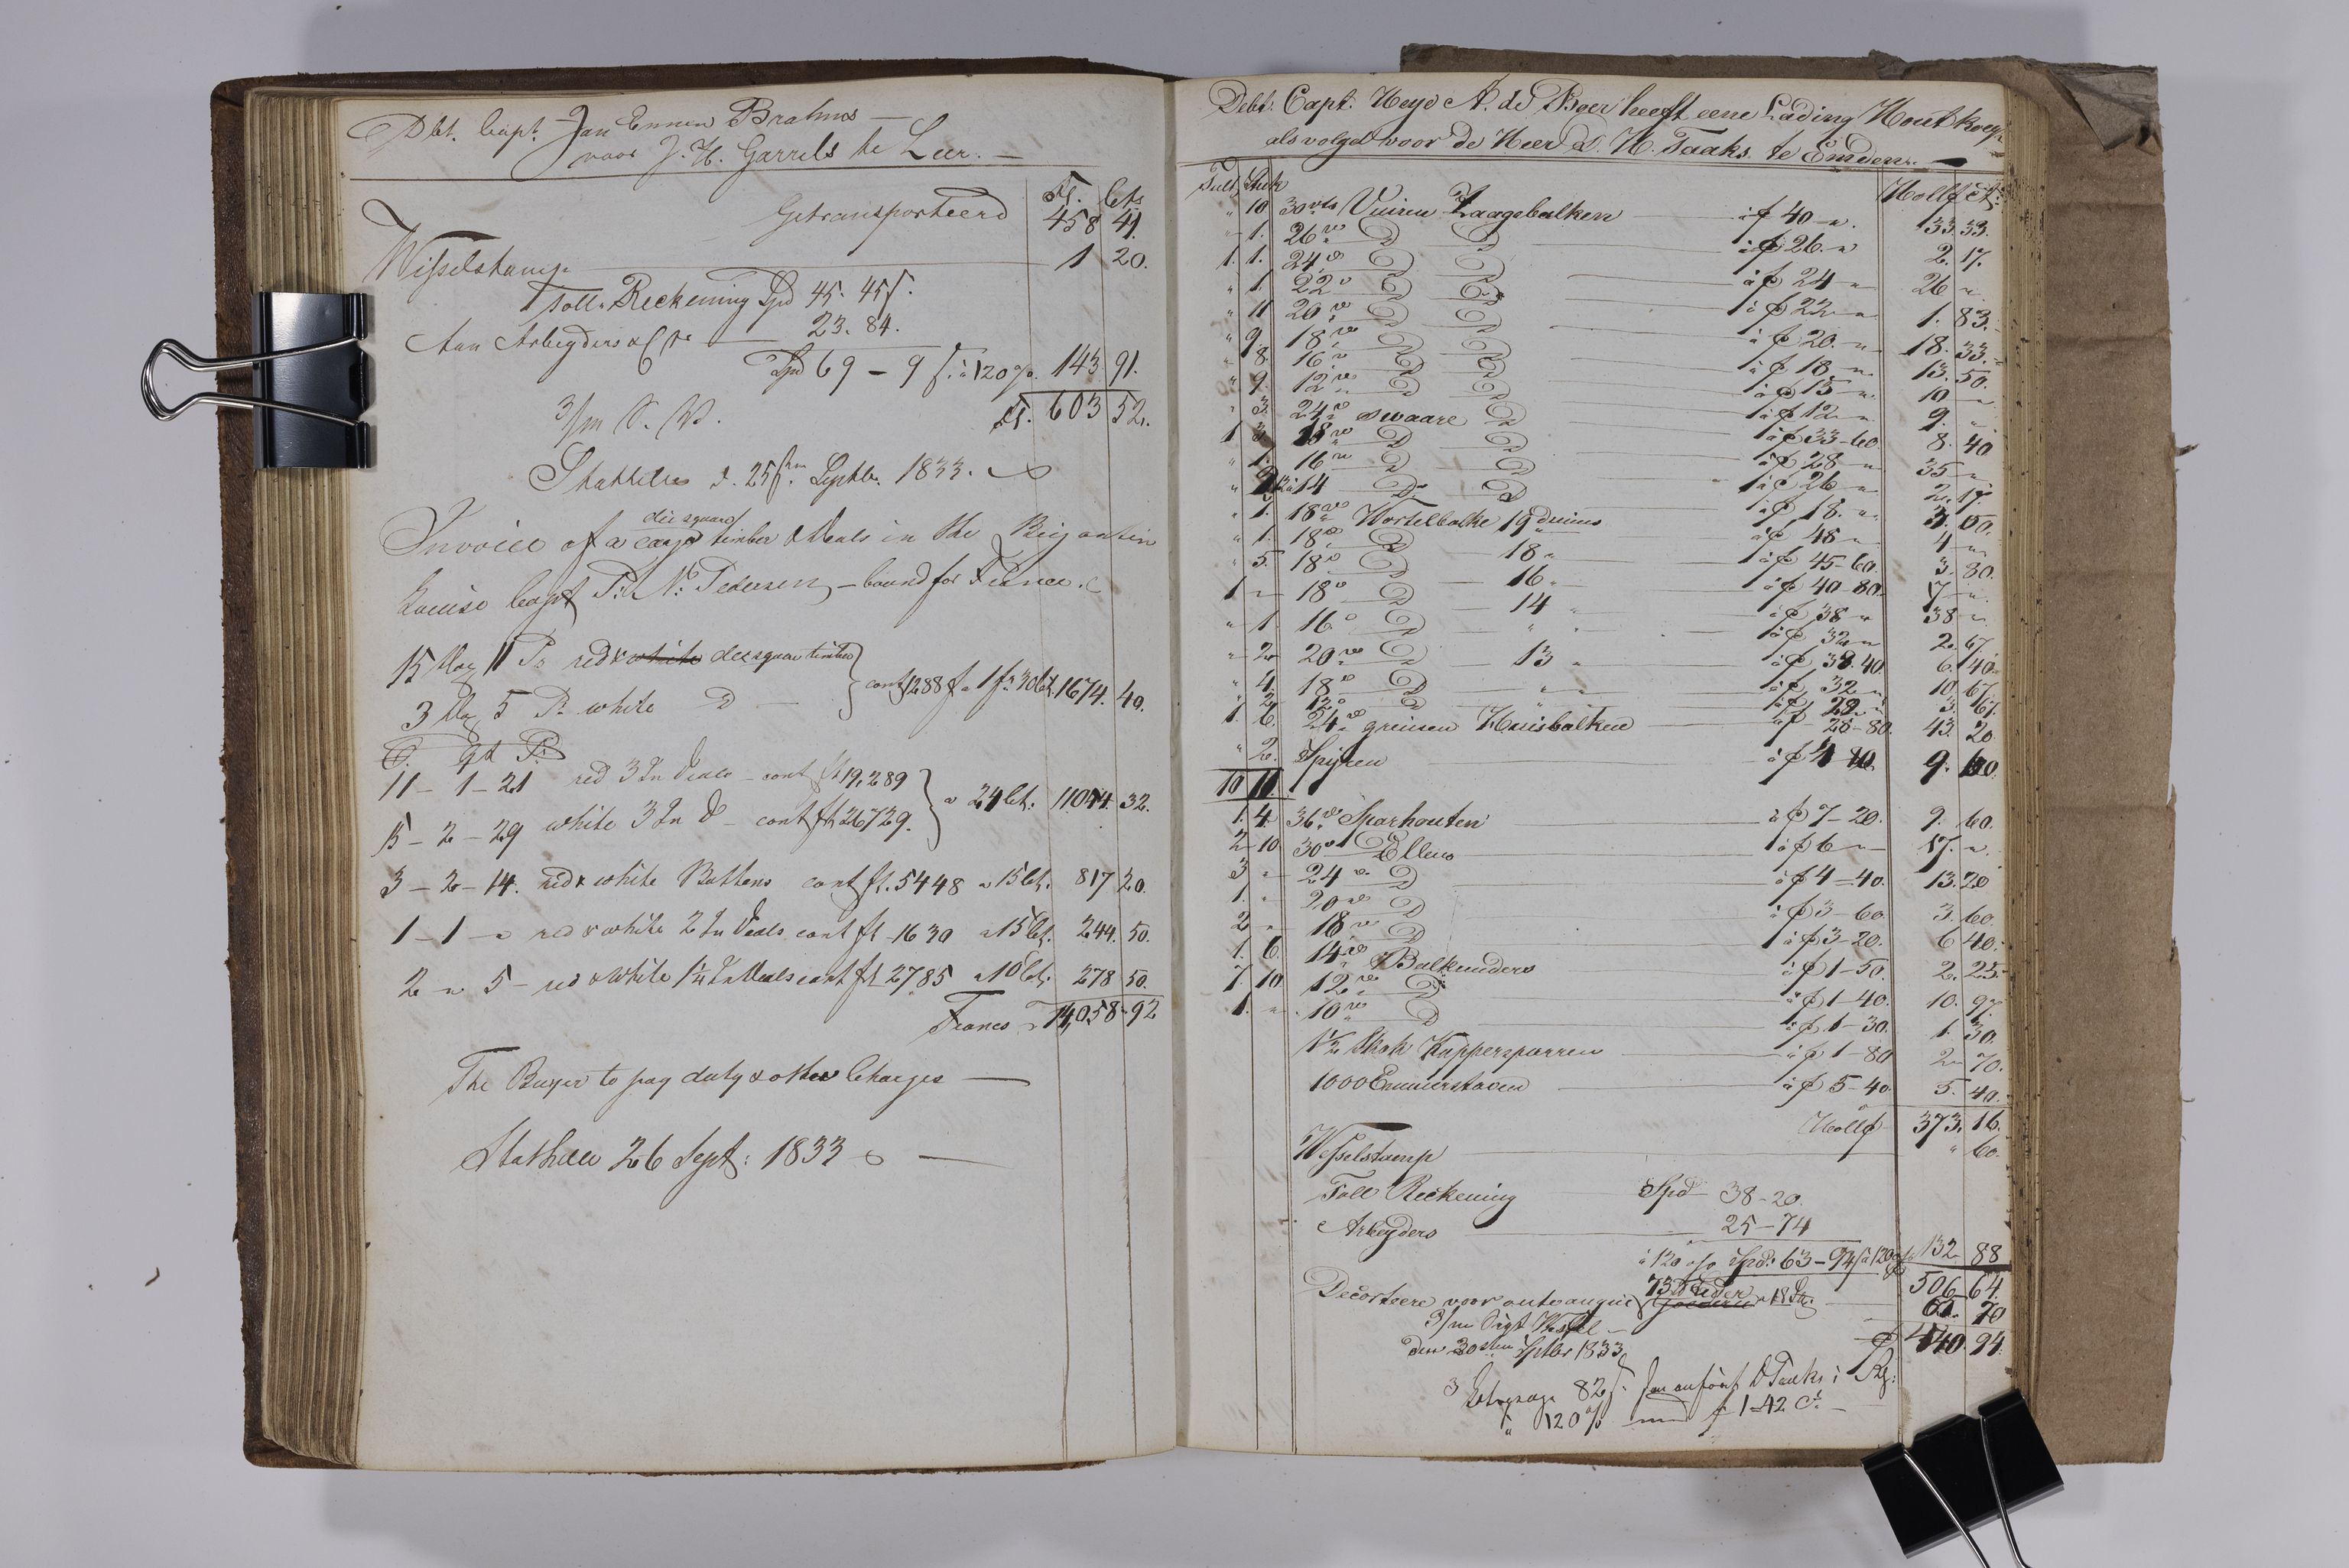 Dbt. Capt. Jan Ennen Brahms —
voor J. H. Garrels te Leer. —
Fl. Cts
Getransporteerd 458 41.
Wisselstamp 1 20.
Toll Reckening Spd 45. 45 ſ.
Aan Arbeyders 23. 84.
Spd 69 – 9 ſ. à 120 % 143 91.
3/m Fl. 603 52.
Stathelle d. 25 Septbr. 1833.
die square
Invoice of a cargo timber & Deals in the Brigantin
Louise Capt P. N. Pedersen, – bound for France.
15 11 Ps red & white die square timber
3 5 Ps white D — cont 1288 f a 1 fr 30 Ct. 1674. 40.
C. qt P.
11 – 1 – 21 red 3 In Deals – cont ft 19,289
15 – 2 – 29 white 3 In D – cont ft 26729. a 24 Ct. 11044. 32.
3 – 2 – 14. red & white Battens cont ft. 5448 a 15 Ct. 817 20.
1 – 1 – " red & white 2 In Deals cont ft 1630 a 15 Ct. 244. 50.
2 " 5 – red & white 1¼ In Deals cont ft 2785 a 10 Ct. 278 50.
Francs 14,058 – 92
The Buyer to pay duty & other Charges —
Stathelle 26 Sept: 1833 —
Debt: Capt: Heye A. de Boer heeft eene Lading Hout
als volgd voor de Heer D. H. Taaks te Emden. —
Tult. Stuk Hollf Ct:
" 10 30 vts Vuiren Zaagebalken à f 40 " 133. 33.
" 1. 26 vo D D à f 26. " 2. 17.
1. 1. 24 vo D D à f 24 " 26 "
" 1 22 v D D à f 22 " 1. 83.
" 11 20 vo D D à f 20. " 18. 33.
" 9. 18 vo D D à f 18 " 13. 50.
" 8. 16 v D D à f 15 " 10 "
" 9. 12 vo D D à f 12 " 9. "
" 3. 24 v swaare D à f 33–60. 8. 40
1 3. 18 vo D D à f 28 " 35 "
" 1. 16 v D D à f 26 " 2. 17.
" 2 14 D D à f 18. " 3. 00.
" 1. 18 vo Wortelbalke 19 duims à f 48 " 4 "
" 1. 18 v D 18 " à f 45–60. 3. 80.
" 5. 18 v D 16 " à f 40–80. 17 "
1 " 18 v D 14 " à f 38 " 38 "
" 1. 16 v D " " à f 32 " 2. 67.
" 2 20 vo D 13 " à f 38. 40 6. 40
" 4. 18 v D " " à f 32 " 10. 67.
" 2. 12 v D à f 22 " 3. 67.
1. 6. 24 vo greinen Huisbalken à f 28–80. 43. 20
" 2. Spijren à f 4 80. 9. 60.
10 11
1. 4. 36 vo Sparhouten à f 7–20. 9. 60.
2 10. 30 vo Ellens à f 6 " 17. "
3 " 24 vo D à f 4–40. 13. 20
1. " 20 vo D à f 3–60. 3. 60.
2 " 18 vo D à f 3–20. 6 40.
1. 6. 14 vo Balkunders à f 1–50. 2. 25.
7. 10 12 vo D à f 1–40. 10. 97.
1. " 10 vo D à f 1–30. 1. 30.
1½ Skok Kappersparren à f 1–80 2. 70.
1000 Emmerstaven à f 5–40. 5. 40.
Hollf 373. 16.
Wesselstamp " 60.
Toll Reckening Spd 38–20.
Arbeyders 25–74
à 120 o/o Spd: 63–94 ſ à 120 % 132 88
506. 64.
Decorteere voor 73 à 18
3/m Sigt Wessel 70
den 30sten Septbr 1833. f 440. 94.
82 ſ. D Taaks
à 120 % f 1–42 Ct —